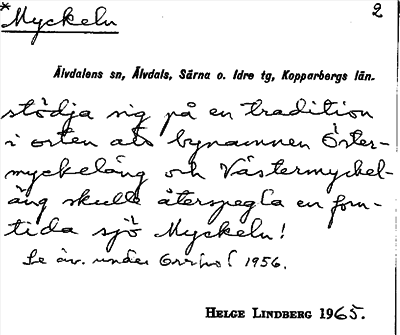 *Myckeln 2
Älvdalens sn, Älvdals, Särna o. Idre tg, Kopparbergs län.
stödja sig på en tradition
i orten att bynamnen Öster-
myckeläng och Västermyckel-
äng skulle återspegla en forn-
tida sjö Myckeln!
Se äv. under 1956.
HELGE LINDBERG 1965.